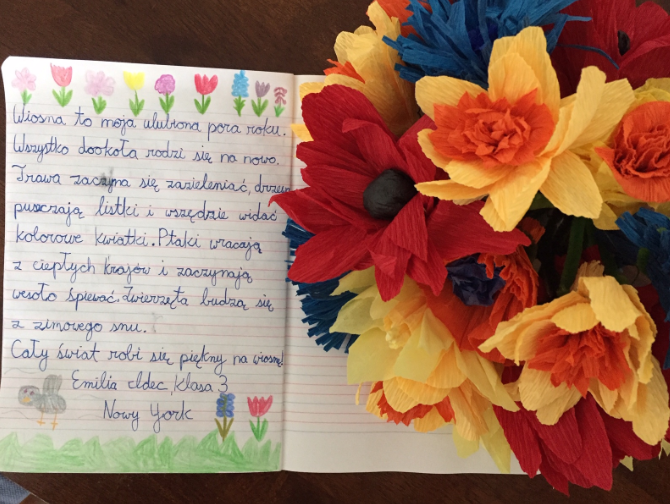 Wiosna to moja ulubiona pora roku.
Wszystko dookoła rodzi się na nowo.
Trawa zaczyna się zazieleniać, drzewa
puszczają listki i wszędzie widać
kolorowe kwiatki. Ptaki wracają
z ciepłych krajów i zaczynają
wesoło śpiewać. Zwierzęta budzą się
z zimowego snu.
Cały świat robi się piękny na wiosnę!
Emilia , klasa 3
Nowy York